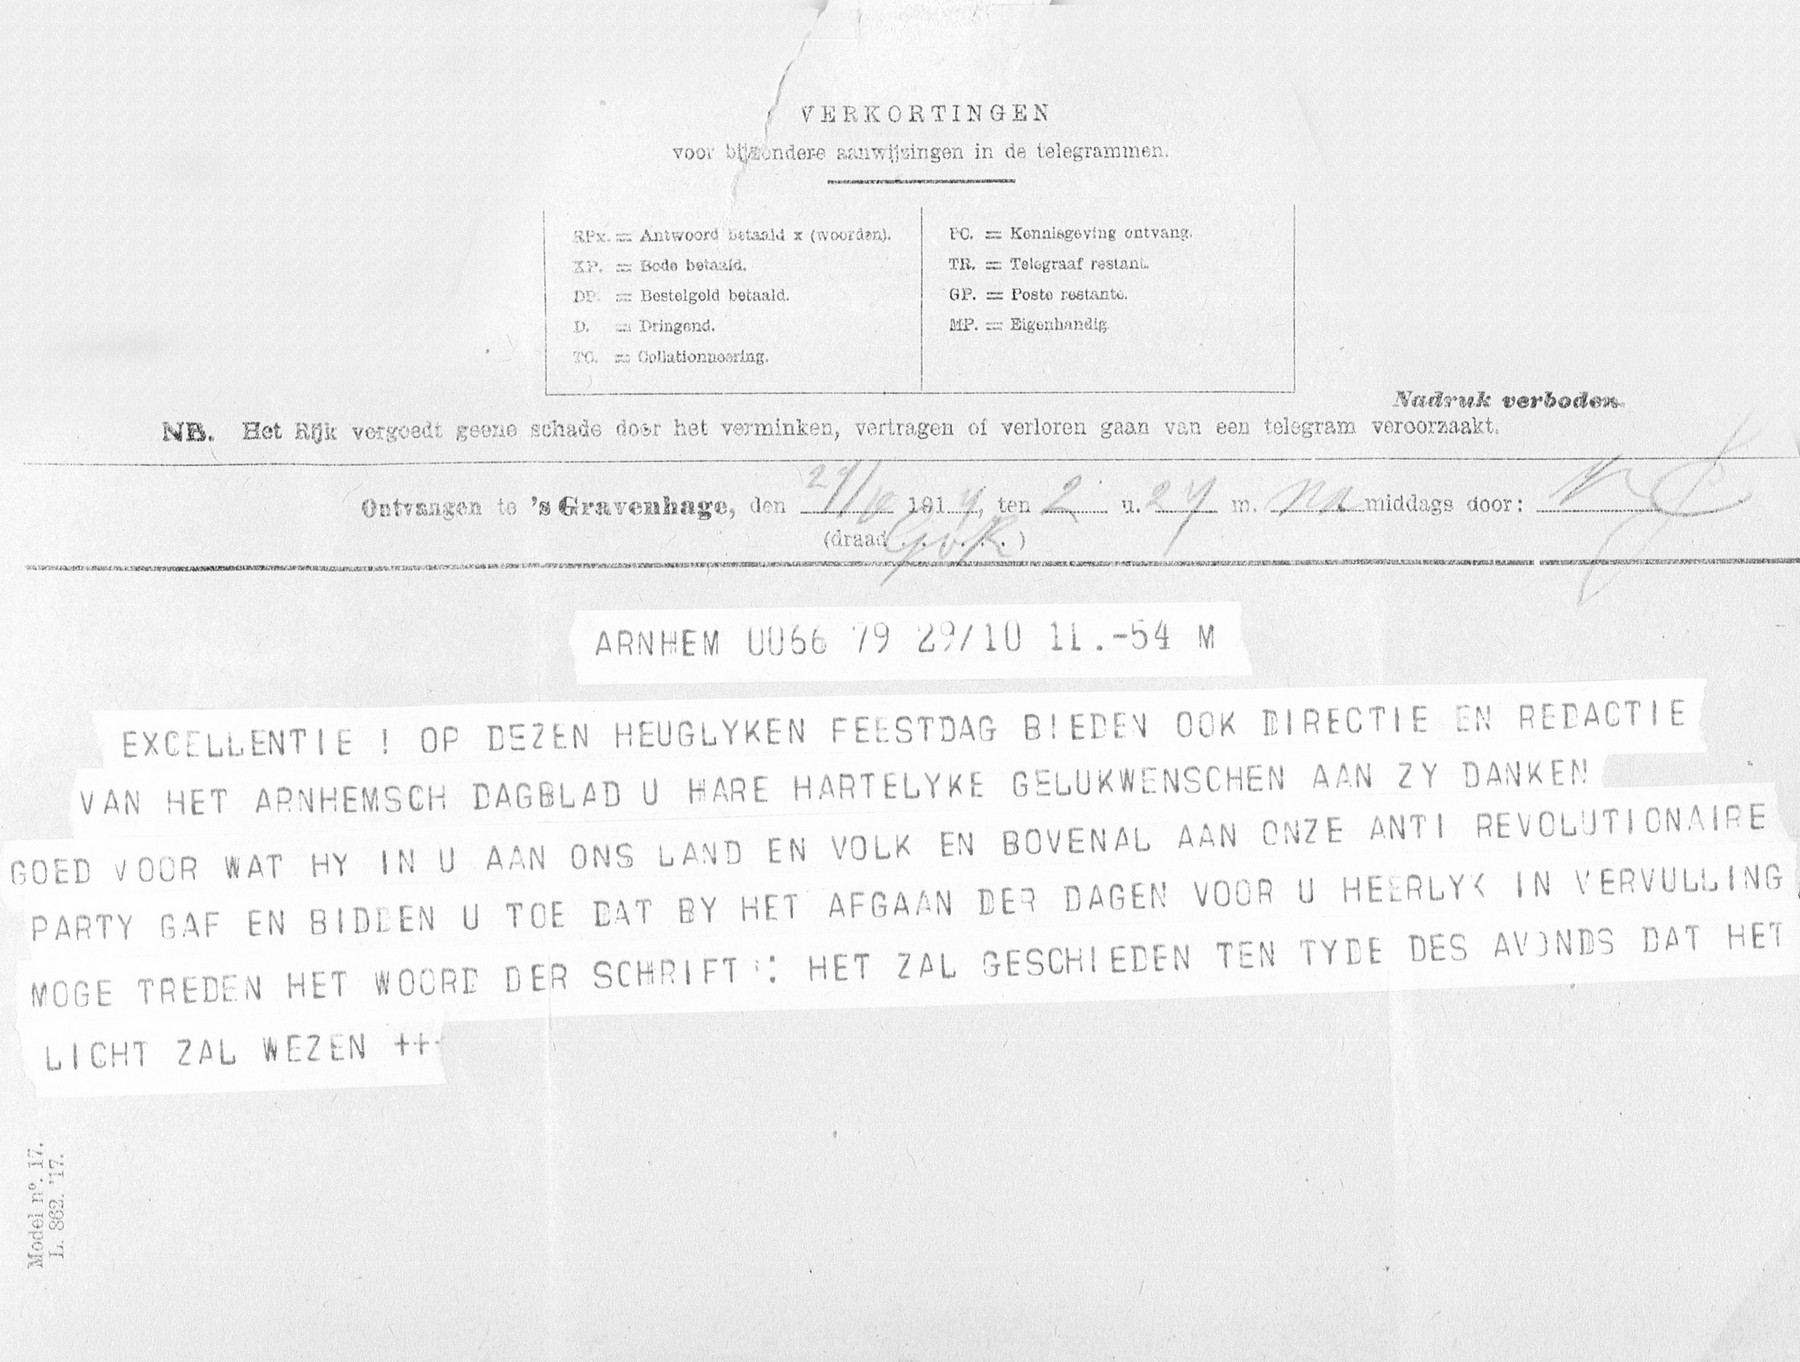 VERKORTINGEN
voor bijzondere aanwijzingen in de telegrammen.
RPx. = Antwoord betaald x (woorden).
XP. = Bode betaald.
DP. = Bestelgeld betaald.
D. = Dringend.
TC. = Collationneering.
PC. = Kennisgeving ontvang.
TR. = Telegraaf restant.
GP. = Poste restante.
MP. = Eigenhandig.
Nadruk verboden.
NB. Het Rijk vergoedt geene schade door het verminken, vertragen of verloren gaan van een telegram veroorzaakt.
Ontvangen te 's Gravenhage, den 29/10 191 , ten 2 u. 27 m. na middags door:
(draad . . . . . )
ARNHEM 0066 79 29/10 11.-54 M
EXCELLENTIE ! OP DEZEN HEUGLYKEN FEESTDAG BIEDEN OOK DIRECTIE EN REDACTIE
VAN HET ARNHEMSCH DAGBLAD U HARE HARTELYKE GELUKWENSCHEN AAN ZY DANKEN
GOED VOOR WAT HY IN U AAN ONS LAND EN VOLK EN BOVENAL AAN ONZE ANTI REVOLUTIONAIRE
PARTY GAF EN BIDDEN U TOE DAT BY HET AFGAAN DER DAGEN VOOR U HEERLYK IN VERVULLING
MOGE TREDEN HET WOORD DER SCHRIFT : HET ZAL GESCHIEDEN TEN TYDE DES AVONDS DAT HET
LICHT ZAL WEZEN ++-
Model nº. 17.
L. 862. '17.